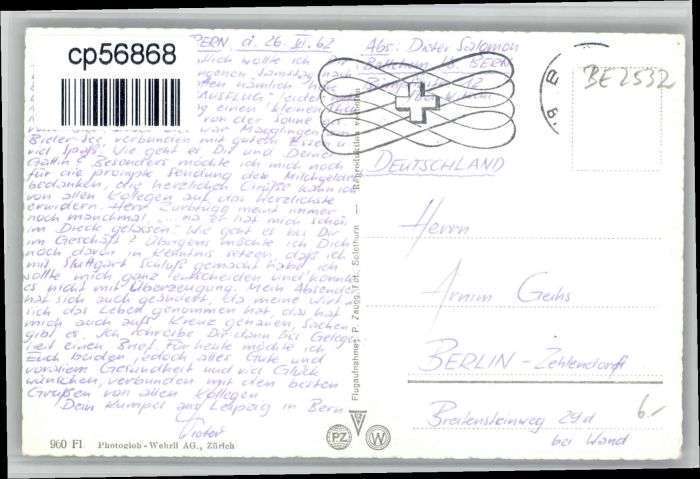 cp56868
BERN, d. 26. VI. 62
wollte ich
Samstag nach
nämlich
einen kleinen
von der Sonne
war Magglingen
Bieler See, verbunden mit gutem Essen u.
viel Spaß. Wie geht es Dir und Deiner
Gattin? Besonders möchte ich mich noch
für die prompte Sendung des Milchgeldes
bedanken, die herzlichen Grüße kann ich
von allen Kollegen auf das Herzlichste
erwidern. Herr Zurbrügg meint immer
noch manchmal, na es hat mich schön
im Dreck gelassen. Wie geht es bei Dir
im Geschäft? Übrigens möchte ich Dich
noch davon in Kenntnis setzen, daß ich
mit Stuttgart Schluß gemacht habe, ich
sollte mich ganz entscheiden und konnte
es nicht mit Überzeugung. Mein Absender
hat sich auch geändert, da meine Wirtin
sich das Leben genommen hat, das hat
mich auch aufs Kreuz gehauen, Sachen
gibt es. Ich schreibe Dir dann bei Gelegen-
heit einen Brief. Für heute möchte ich
Euch beiden, jedoch alles Gute und
vor allem Gesundheit und viel Glück
wünschen, verbunden mit den besten
Grüßen von allen Kollegen
Dein Kumpel aus Leipzig in Bern
Dieter
Abs: Dieter Salomon
BERN
DEUTSCHLAND
Herrn
Armin Gehs
BERLIN - Zehlendorf
Breitensteinweg 29d
bei Wand
BE2532
6.-
Flugaufnahmen P. Zaugg, Fdt., Solothurn — Reproduktion verboten
PZ
W
960 Fl Photoglob-Wehrli AG., Zürich